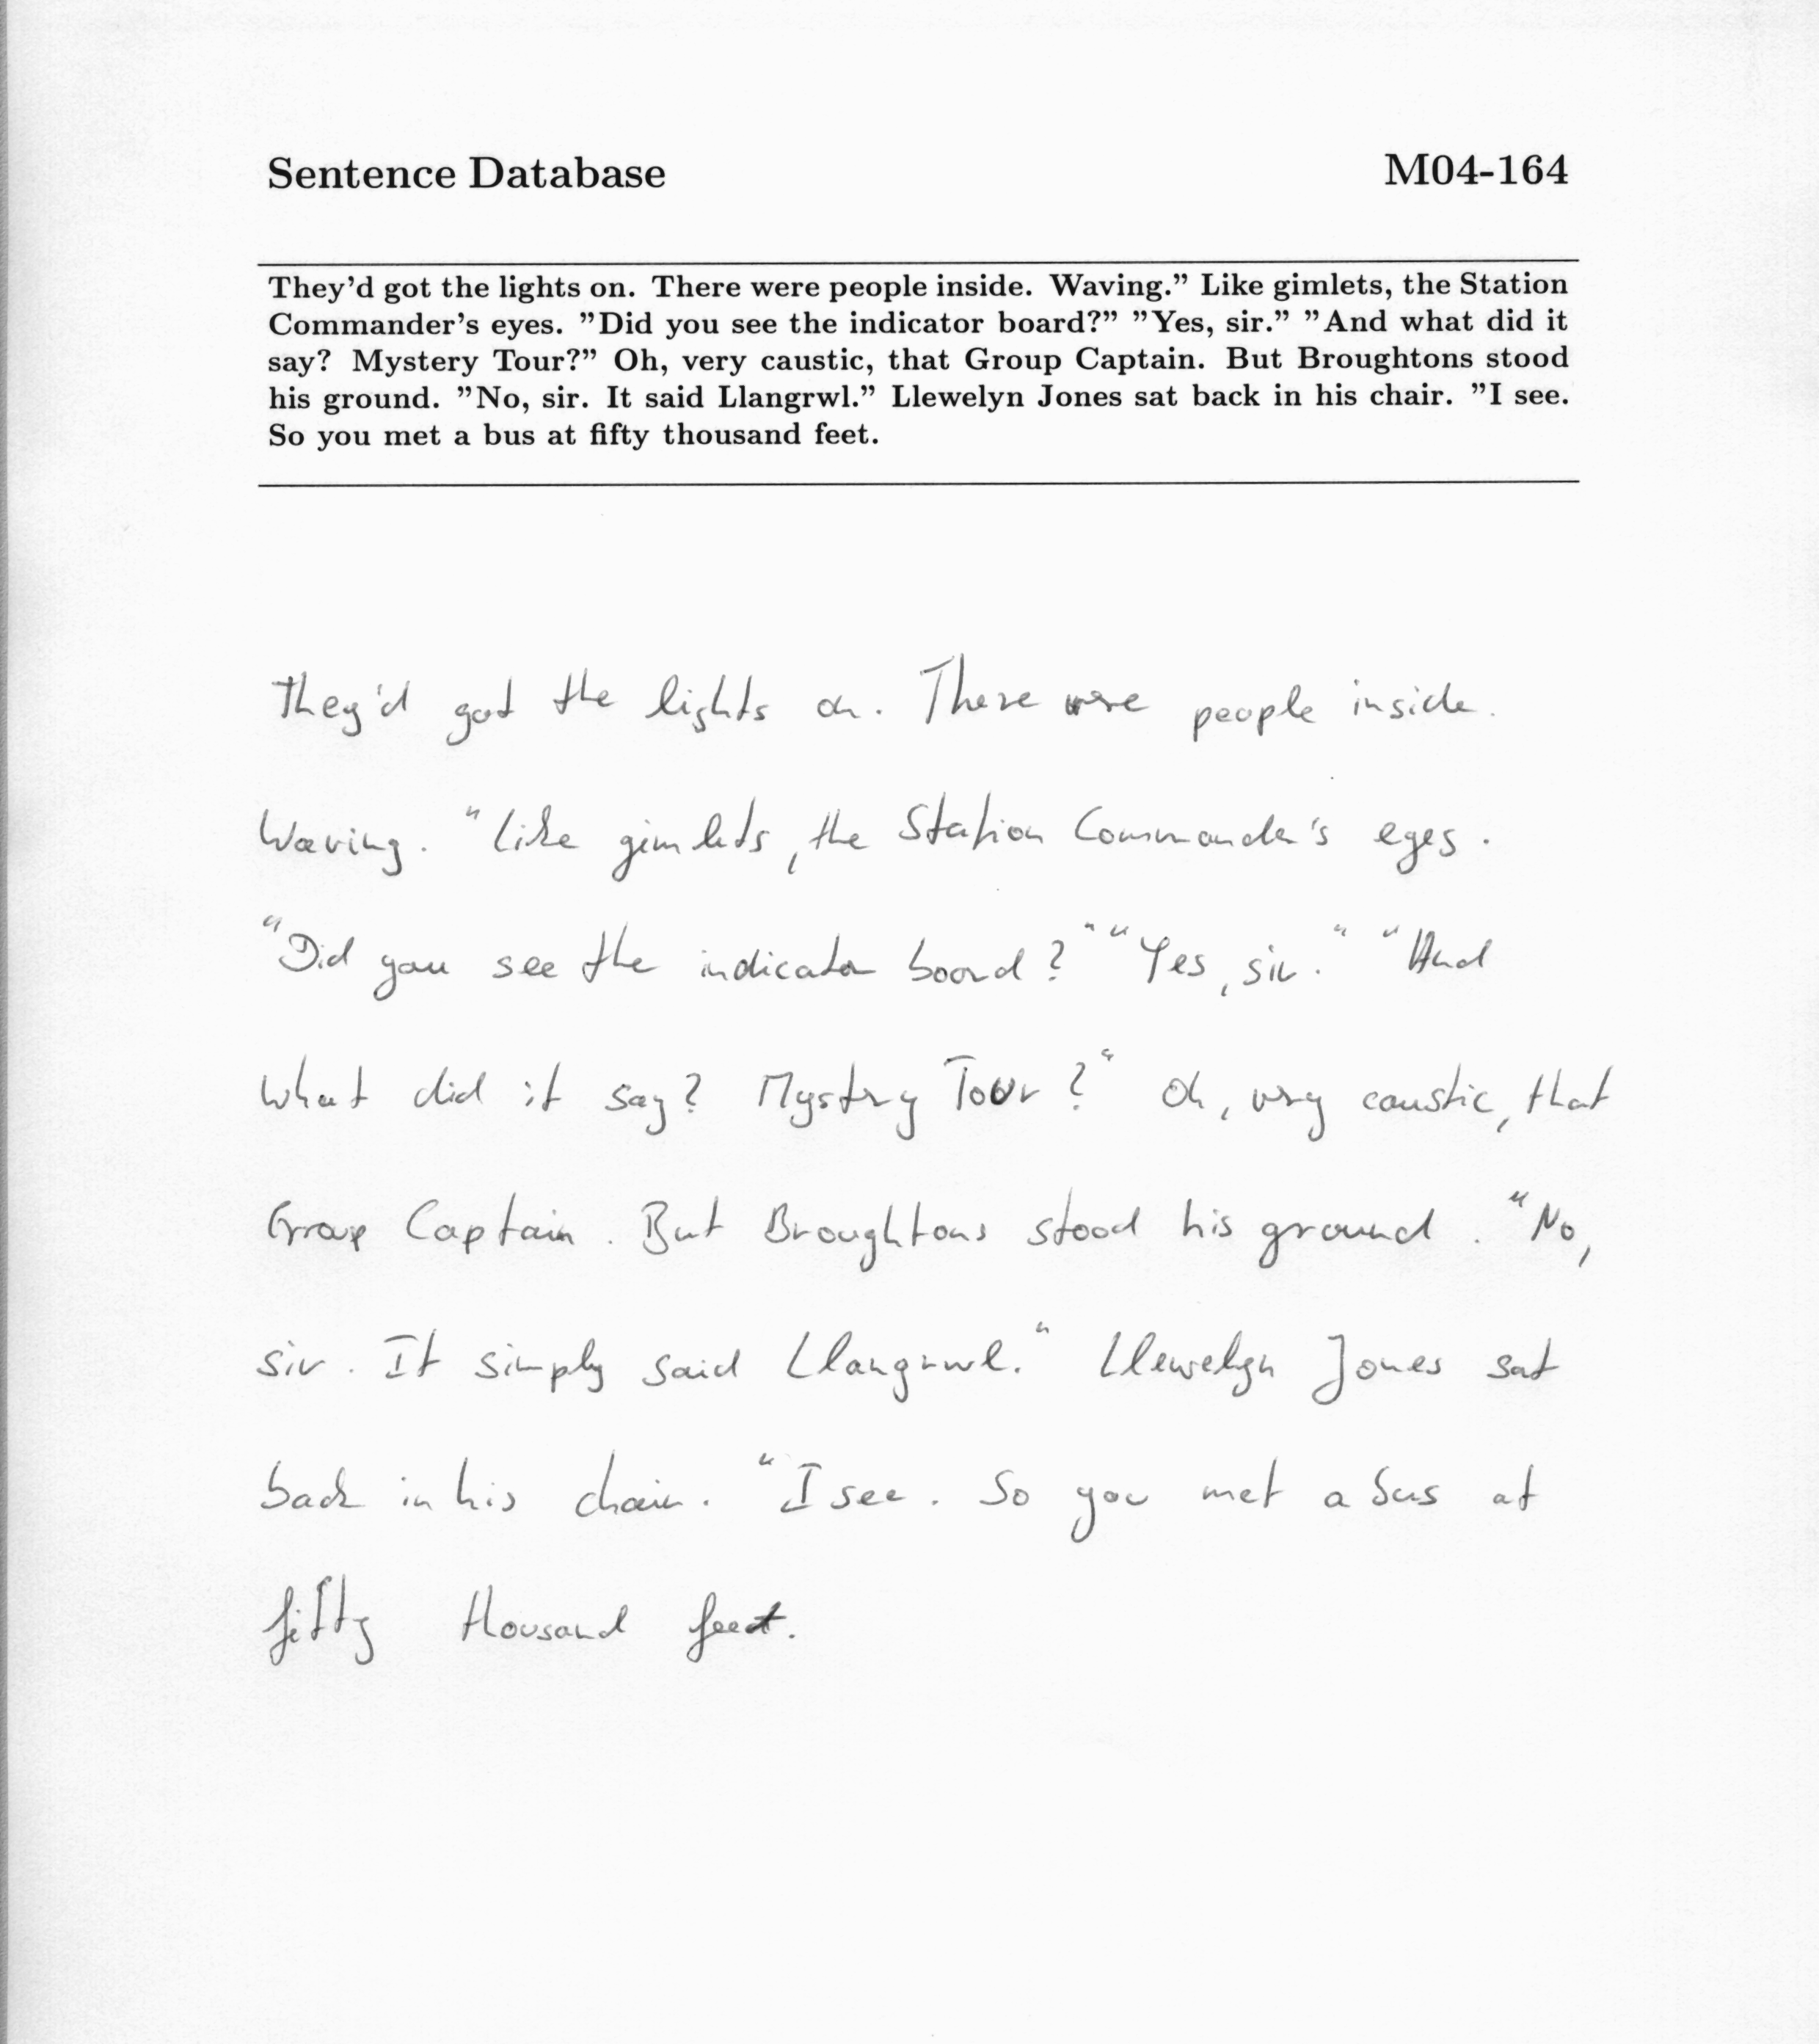 Sentence Database M04-164
They'd got the lights on. There were people inside. Waving.” Like gimlets, the Station
Commander's eyes. ”Did you see the indicator board?” ”Yes, sir.” ”And what did it
say? Mystery Tour?” Oh, very caustic, that Group Captain. But Broughtons stood
his ground. ”No, sir. It said Llangrwl.” Llewelyn Jones sat back in his chair. ”I see.
So you met a bus at fifty thousand feet.
They'd got the lights on. There were people inside.
Waving. "Like gimlets, the Station Commander's eyes.
"Did you see the indicator board?" "Yes, sir." "And
what did it say? Mystery Tour?" Oh, very caustic, that
Group Captain. But Broughtons stood his ground. "No,
sir. It simply said Llangrwl." Llewelyn Jones sat
back in his chair. "I see. So you met a bus at
fifty thousand feet.